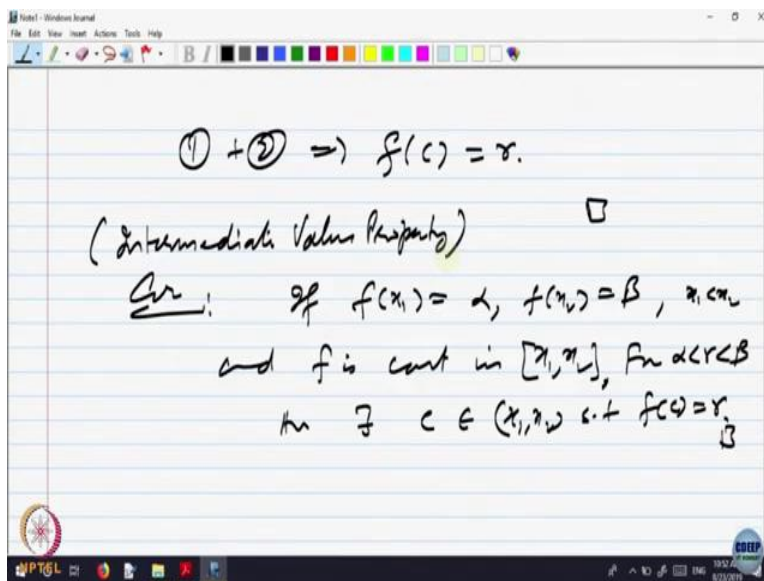 Note1 - Windows Journal
File Edit View Insert Actions Tools Help
B I
① + ② => f(c) = r.
(Intermediate Value Property) □
Cor: If f(x₁) = α, f(x₂) = β, x₁<x₂
and f is cont in [x₁, x₂], For α<r<β
then ∃ c ∈ (x₁, x₂) s.t f(c) = r.
NPTEL
CDEEP
ENG
8/23/2019